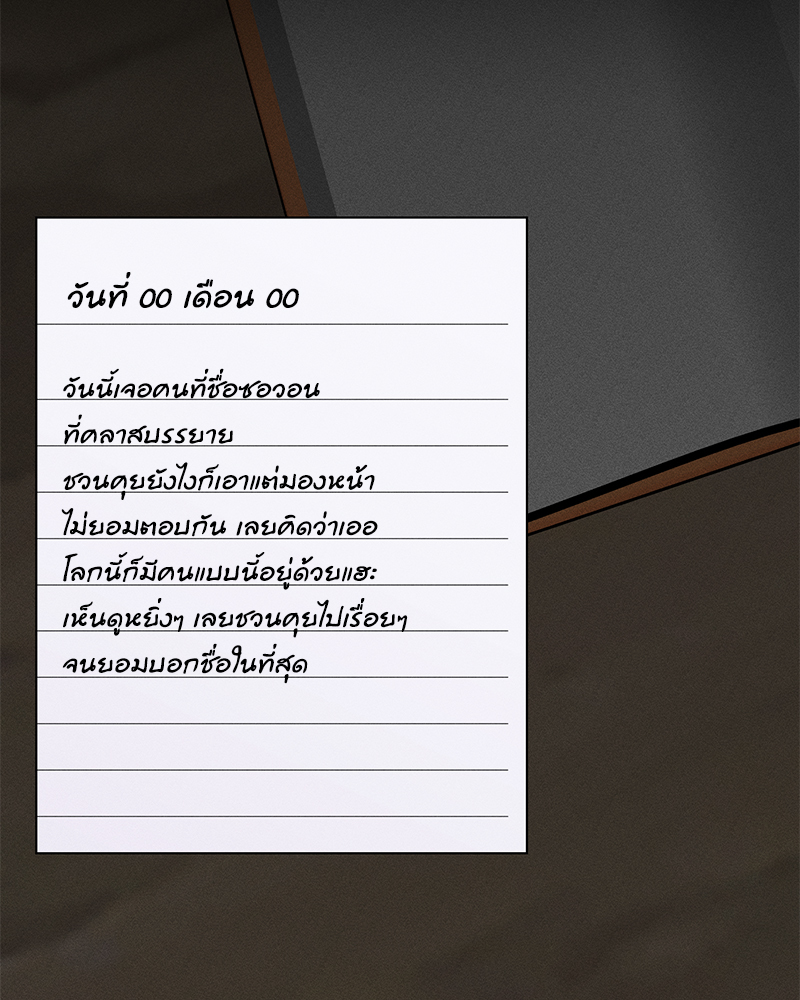 วันที่ 00 เดือน 00
วันนี้เจอคนที่ชื่อซอวอน
ที่คลาสบรรยาย
ชวนคุยยังไงก็เอาแต่มองหน้า
ไม่ยอมตอบกัน เลยคิดว่าเออ
โลกนี้ก็มีคนแบบนี้อยู่ด้วยแฮะ
เห็นดูหยิ่งๆ เลยชวนคุยไปเรื่อยๆ
จนยอมบอกชื่อในที่สุด